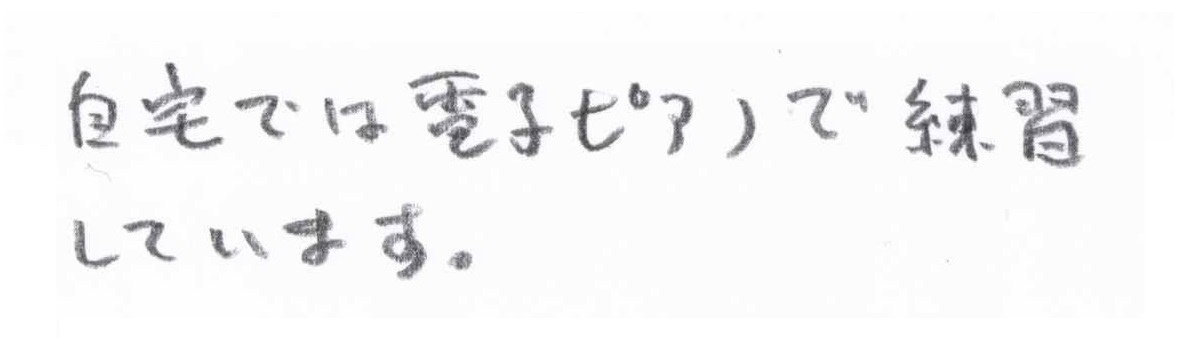 自宅では電子ピアノで練習
しています。